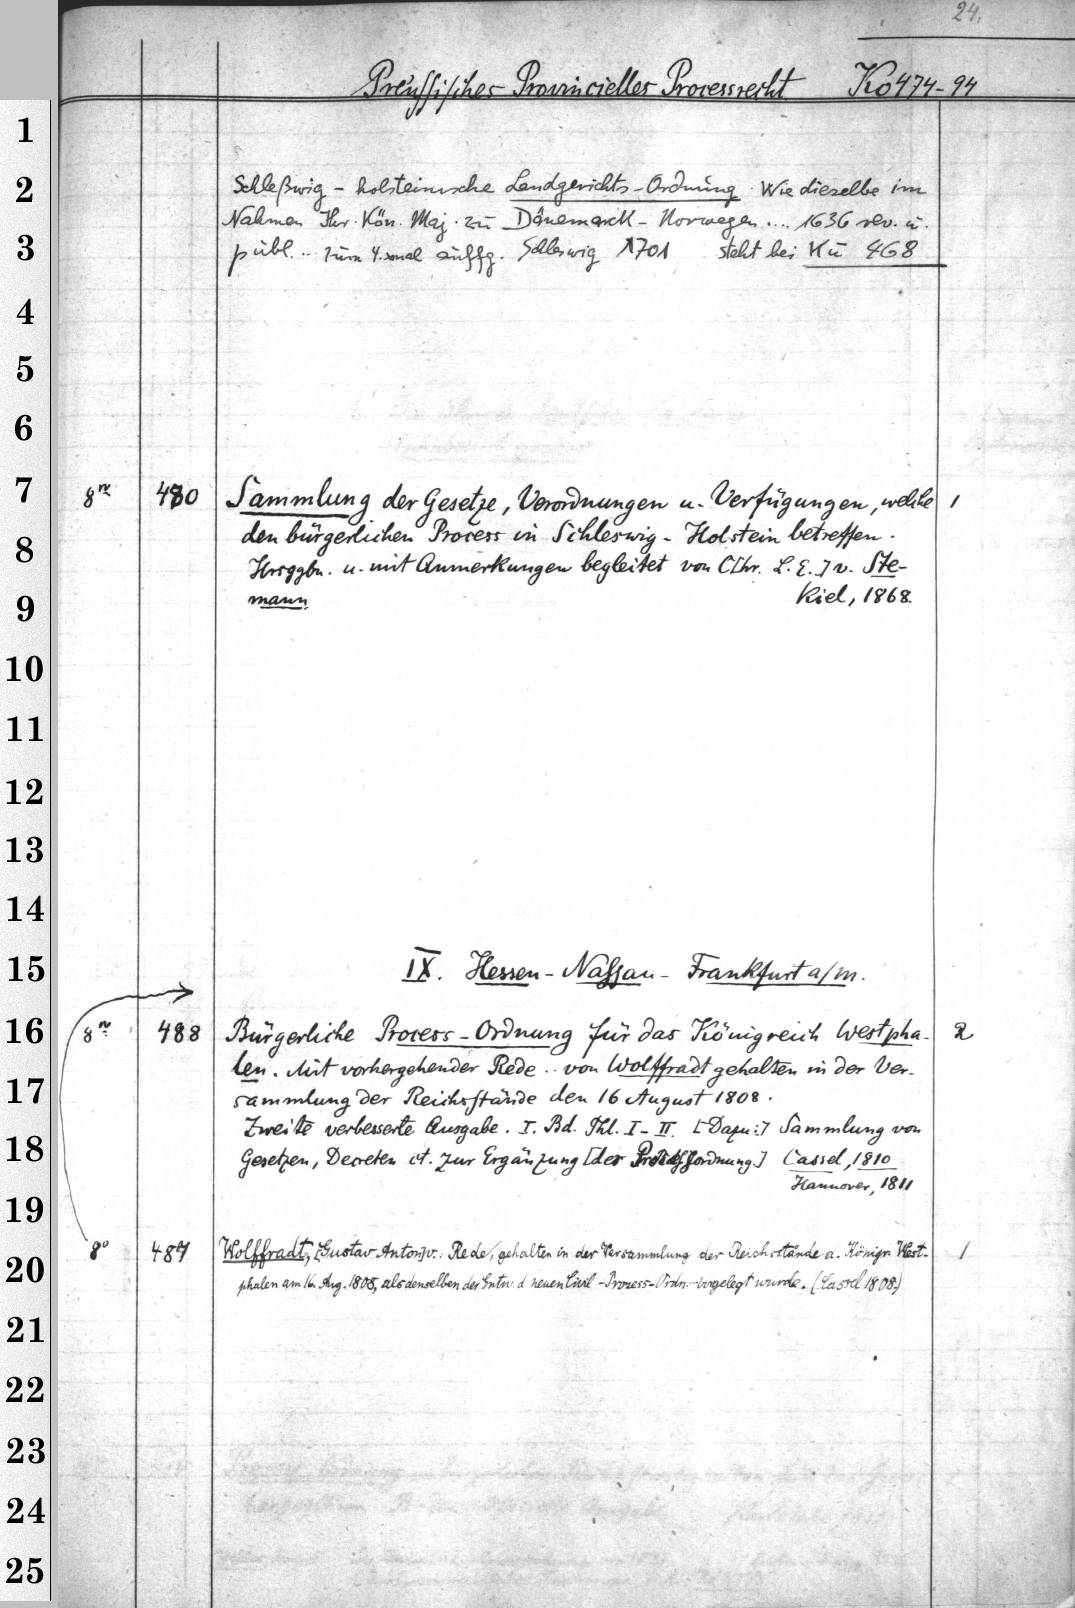 24.
Preussisches Provincielles Processrecht Ko 474-94
1
2 Schleßwig - holsteinische Landgerichts-Ordnung. Wie dieselbe im
Nahmen Ihr. Kön. Maj. zu Dänemarck - Norwegen .... 1636 rev. u.
3 publ. ... zum 4. xmal auffg. Schleswig 1701 steht bei Ku 468
4
5
6
7 8° 480 Sammlung der Gesetze, Verordnungen u. Verfügungen, welche 1
8 den bürgerlichen Process in Schleswig - Holstein betreffen.
Hrsggbn. u. mit Anmerkungen begleitet von C[hr. L. E.] v. Ste-
9 mann Kiel, 1868.
10
11
12
13
14
15 IX. Hessen - Nassau - Frankfurt a/m.
16 8° 488 Bürgerliche Process - Ordnung für das Königreich Westpha- 2
len. Mit vorhergehender Rede .. von Wolffradt gehalten in der Ver-
17 sammlung der Reichsstände den 16 August 1808.
Zweite verbesserte Ausgabe. I. Bd. Thl. I - II. [Dazu:] Sammlung von
18 Gesetzen, Decreten ct. zur Ergänzung [der Proceßordnung] Cassel, 1810
Hannover, 1811
19
8° 487 Wolffradt, [Gustav Anton] v.: Rede, gehalten in der Versammlung der Reichsstände a. Königr. West- 1
20 phalen am 16. Aug. 1808, als denselben der Entw. d. neuen Civil - Process - Ordn. vorgelegt wurde. (Cassel 1808)
21
22
23
24
25